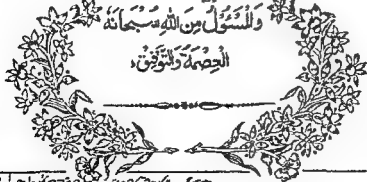 وَالْمَسْئُولُ مِنَ اللهِ سُبْحَانَهُ
الْعِصْمَةُ وَالتَّوْفِيقُ